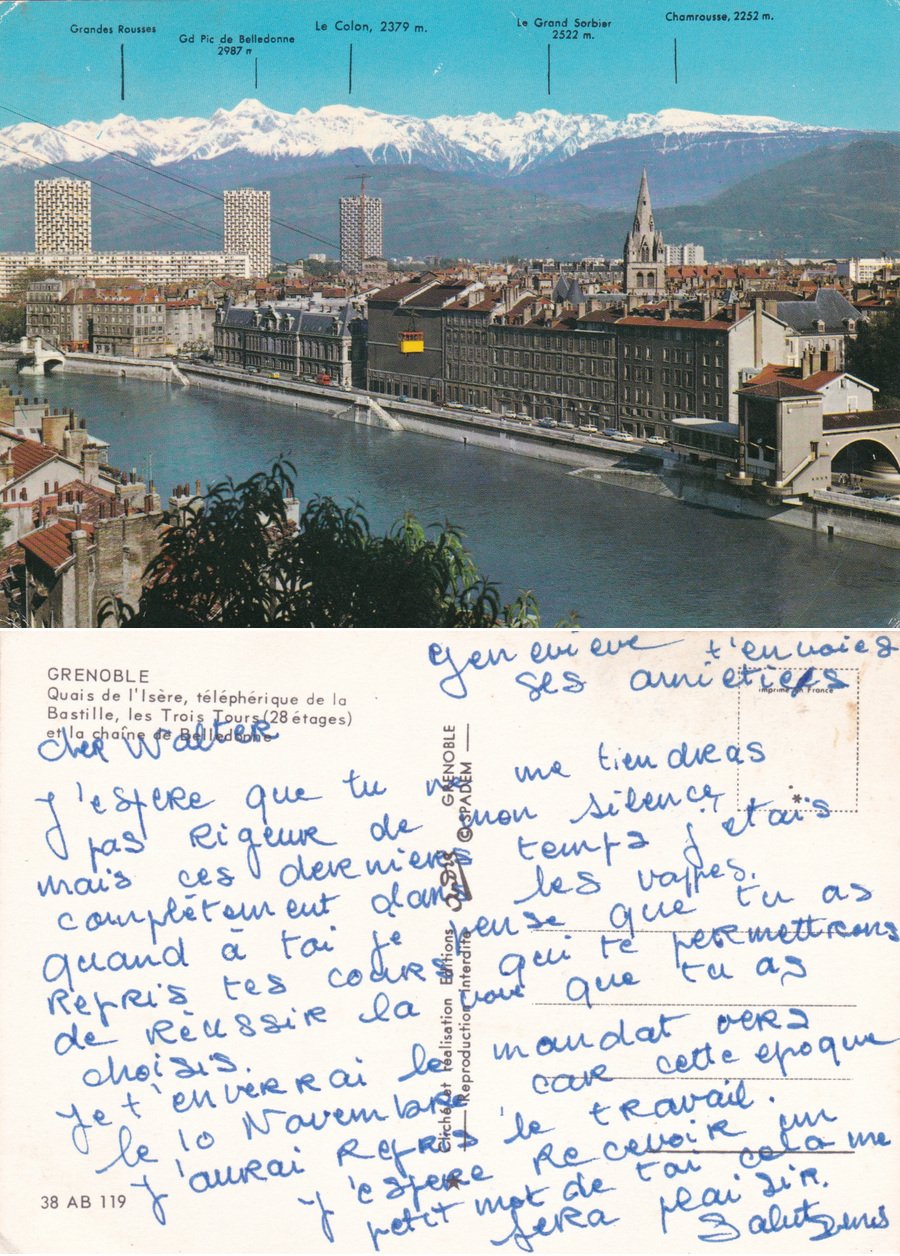 Grandes Rousses
Gd Pic de Belledonne
2987 m
Le Colon, 2379 m.
Le Grand Sorbier
2522 m.
Chamrousse, 2252 m.
GRENOBLE
Quais de l'Isère, téléphérique de la
Bastille, les Trois Tours (28 étages)
et la chaîne de Belledonne
Genevieve t'envoies
ses amitiés
imprimé en France
Cher Walter
J'espere que tu ne me tiendras
pas rigeur de mon silence,
mais ces derniers temps j'etais
complètement dans les vappes.
quand à toi je pense que tu as
repris tes cours qui te permettrons
de rèussir la voie que tu as
choisis.
Je t'enverrai le mandat vers
le 10 Novembre car cette epoque
j'aurai repris le travail.
J'espere recevoir un
petit mot de toi cela me
fera plaisir.
Salut Denis
Cliché et réalisation Editions André GRENOBLE
Reproduction Interdite © SPADEM
38 AB 119